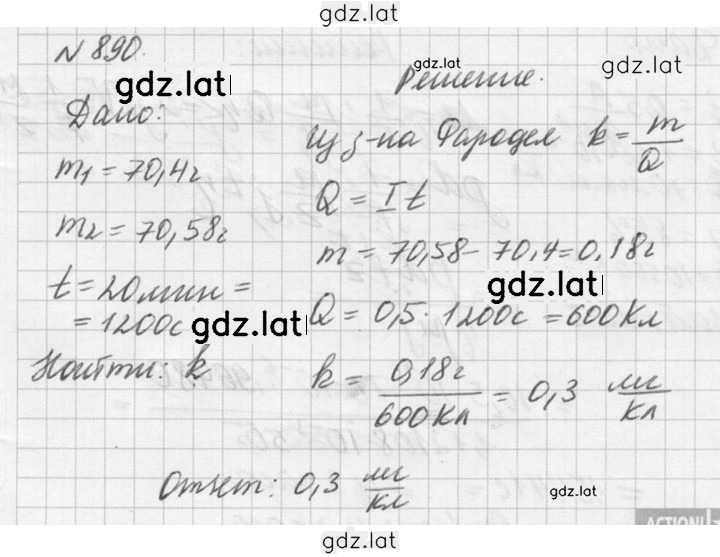 gdz.lat
N 890.
gdz.lat
gdz.lat
Решение.
Дано:
Из з-на Фарадея k = m/Q
m1 = 70,4г
Q = It
m2 = 70,58г
m = 70,58 - 70,4 = 0,18г
gdz.lat
t = 20мин =
= 1200с
gdz.lat
Q = 0,5 · 1200с = 600Кл
Найти: k
k = 0,18г/600Кл = 0,3 мг/Кл
Ответ: 0,3 мг/Кл
gdz.lat
gdz.lat